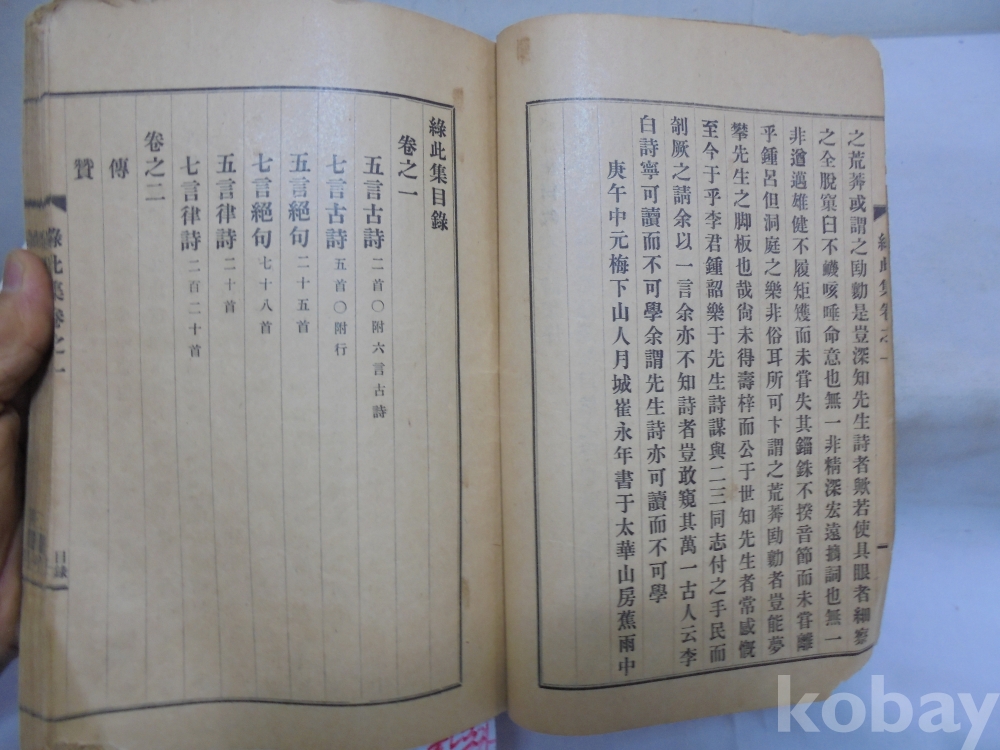 之荒莾或謂之勁勷是豈深知先生詩者歟若使具眼者細察
之全脫窠臼不巇咳唾命意也無一非精深宏遠摛詞也無一
非遒邁雄健不履矩矱而未甞失其錙銖不揆音節而未甞離
乎鍾呂但洞庭之樂非俗耳所可卞謂之荒莾勁勷者豈能夢
攀先生之脚板也哉尙未得壽梓而公于世知先生者常感慨
至今于乎李君鍾韶樂于先生詩謀與二三同志付之手民而
剞厥之請余以一言余亦不知詩者豈敢窺其萬一古人云李
白詩寧可讀而不可學余謂先生詩亦可讀而不可學
庚午中元梅下山人月城崔永年書于太華山房蕉雨中
綠此集目錄
卷之一
五言古詩 二首〇附六言古詩
七言古詩 五首〇附行
五言絕句 二十五首
七言絕句 七十八首
五言律詩 二十首
七言律詩 二百二十首
卷之二
傳
贊
綠此集卷之一
目錄
kobay